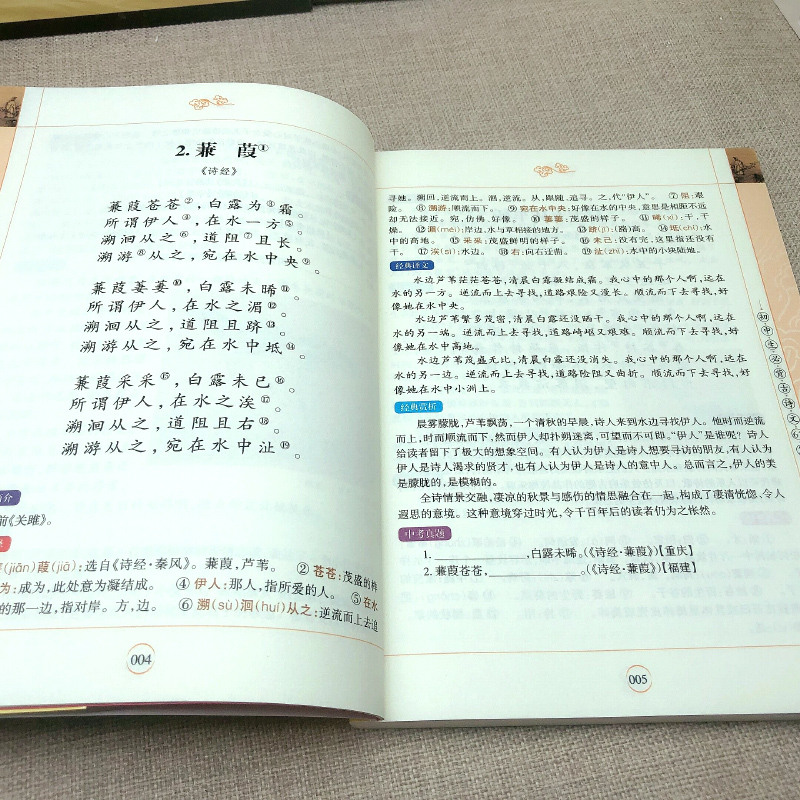 2.蒹 葭①
《诗经》
蒹葭苍苍②，白露为③霜。
所谓伊人④，在水一方⑤。
溯洄从之⑥，道阻⑦且长。
溯游⑧从之，宛在水中央⑨。
蒹葭萋萋⑩，白露未晞⑪。
所谓伊人，在水之湄⑫。
溯洄从之，道阻且跻⑬。
溯游从之，宛在水中坻⑭。
蒹葭采采⑮，白露未已⑯。
所谓伊人，在水之涘⑰。
溯洄从之，道阻且右⑱。
溯游从之，宛在水中沚⑲。
简介
前《关雎》。
(jiān)葭(jiā)：选自《诗经·秦风》。蒹葭，芦苇。 ②苍苍：茂盛的样
为：成为，此处意为凝结成。 ④伊人：那人，指所爱的人。 ⑤在水
的那一边，指对岸。方，边。 ⑥溯(sù)洄(huí)从之：逆流而上去追
004
寻她。溯洄，逆流而上。溯，逆流。从，跟随、追寻。之，代“伊人”。 ⑦阻：艰
险。 ⑧溯游：顺流而下。 ⑨宛在水中央：好像在水的中央，意思是相距不远
却无法接近。宛，仿佛、好像。 ⑩萋萋：茂盛的样子。 ⑪晞(xī)：干，干
燥。 ⑫湄(méi)：岸边，水与草相接的地方。 ⑬跻(jī)：(路)高。 ⑭坻(chí)：水
中的高地。 ⑮采采：茂盛鲜明的样子。 ⑯未已：没有完，这里指还没有
干。 ⑰涘(sì)：水边。 ⑱右：向右迂曲。 ⑲沚(zhǐ)：水中的小块陆地。
经典译文
水边芦苇茫茫苍苍，清晨白露凝结成霜。我心中的那个人啊，远在
水的另一方。逆流而上去寻找，道路艰险又漫长。顺流而下去寻找，好
像她在水中央。
水边芦苇繁多茂密，清晨白露还没晒干。我心中的那个人啊，远在
水的另一端。逆流而上去寻找，道路崎岖又艰难。顺流而下去寻找，好
像她在水中高地。
水边芦苇茂盛无比，清晨白露还没消失。我心中的那个人啊，远在
水的另一边。逆流而上去寻找，道路险阻又曲折。顺流而下去寻找，好
像她在水中小洲上。
经典赏析
晨雾朦胧，芦苇飘荡，一个清秋的早晨，诗人来到水边寻找伊人。他时而逆流
而上，时而顺流而下，然而伊人却扑朔迷离，可望而不可即。“伊人”是谁呢？诗人
给读者留下了极大的想象空间。有人认为伊人是诗人想要寻访的朋友，有人认为
伊人是诗人渴求的贤才，也有人认为伊人是诗人的意中人。总而言之，伊人的美
是朦胧的，是模糊的。
全诗情景交融，凄凉的秋景与感伤的情思融合在一起，构成了凄清恍惚、令人
遐思的意境。这种意境穿过时光，令千百年后的读者仍为之怅然。
中考真题
1.＿＿＿＿，白露未晞。（《诗经·蒹葭》）【重庆】
2.蒹葭苍苍，＿＿＿＿。（《诗经·蒹葭》）【福建】
005
初中生必背古诗文